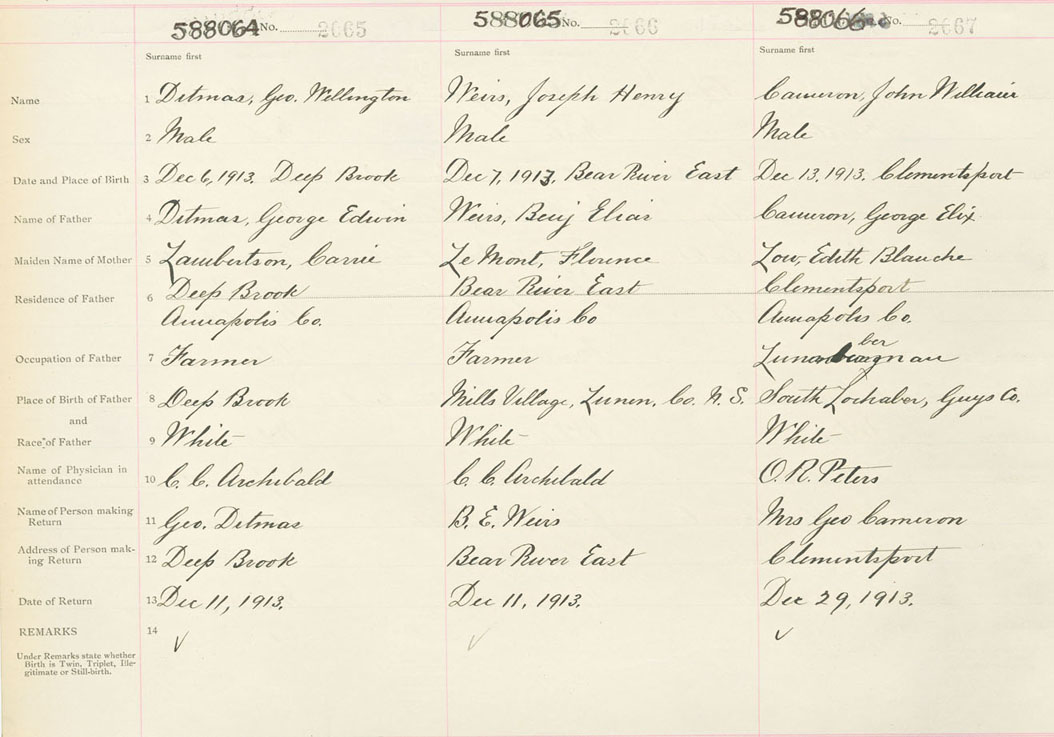 588064 No. 2065 588065 No. 2066 588066 No. 2067
Surname first Surname first Surname first
Name 1 Ditmas, Geo. Wellington Weirs, Joseph Henry Cameron, John William
Sex 2 Male Male Male
Date and Place of Birth 3 Dec 6, 1913. Deep Brook Dec 7, 1913. Bear River East Dec 13. 1913. Clementsport
Name of Father 4 Ditmas, George Edwin Weirs, Benj Elias Cameron, George Elix
Maiden Name of Mother 5 Lambertson, Carrie Le Mont, Florence Low, Edith Blanche
Residence of Father 6 Deep Brook Bear River East Clementsport
Annapolis Co. Annapolis Co Annapolis Co.
ber
Occupation of Father 7 Farmer Farmer
Place of Birth of Father 8 Deep Brook Mills Village, Lunen. Co. N. S. South Lochaber, Guys Co.
and
Race of Father 9 White White White
Name of Physician in
attendance 10 C. C. Archibald C. C. Archibald O. R. Peters
Name of Person making
Return 11 Geo. Ditmas B. E. Weirs Mrs Geo Cameron
Address of Person mak-
ing Return 12 Deep Brook Bear River East Clementsport
Date of Return 13 Dec 11, 1913. Dec 11, 1913. Dec 29, 1913.
REMARKS 14 √ √ √
Under Remarks state whether
Birth is Twin, Triplet, Ille-
gitimate or Still-birth.